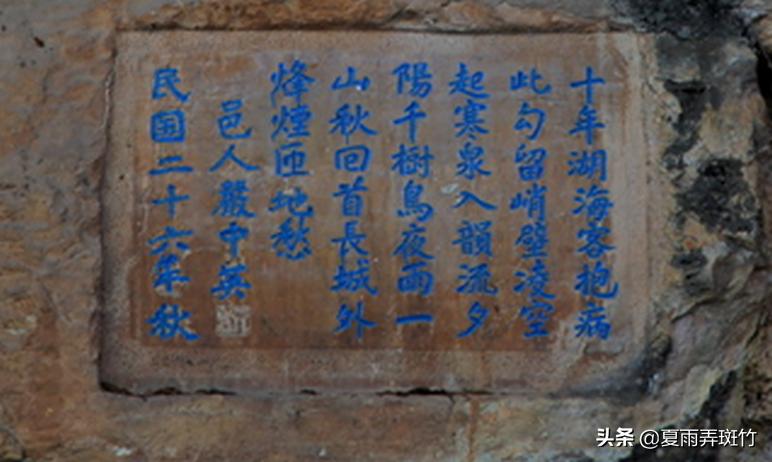 十年湖海客抱病
此勾留峭壁凌空
起寒泉入韻流夕
陽千樹鳥夜雨一
山秋回首長城外
烽煙匝地愁
邑人嚴中英
民国二十六年秋
头条 @夏雨弄斑竹